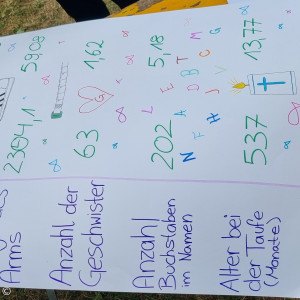 Arms
2304,1
59,08
Anzahl der
Geschwister
63
1,62
G
Anzahl
Buchstaben
im Namen
202
5,18
L E A D T M
N B C
F J R V G
H
Alter bei
der Taufe
(Monate)
537
13,77